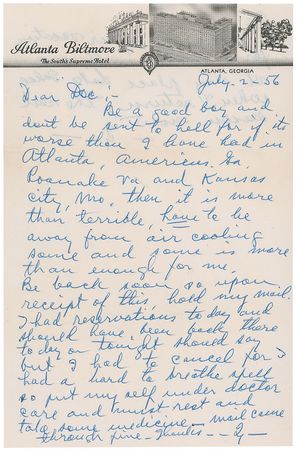 Atlanta Biltmore
The South's Supreme Hotel
ATLANTA, GEORGIA
July - 2 - 56
Dear Doc: -
Be a good boy and
dont be sent to hell for if its
worse than I have had in
Atlanta, Americus. Ga.
Roanoke Va and Kansas
city, Mo, then it is more
than terrible, have to be
away from air cooling
some and some is more
than enough for me.
Be back soon so upon
receipt of this, hold my mail.
I had reservations today and
should have been back there
today or tonight should say
but I had to cancel for I
had a hard to breathe spell
so put my self under doctor
care and must rest and
take some medicine - mail came
through fine - Thanks - - 2 -